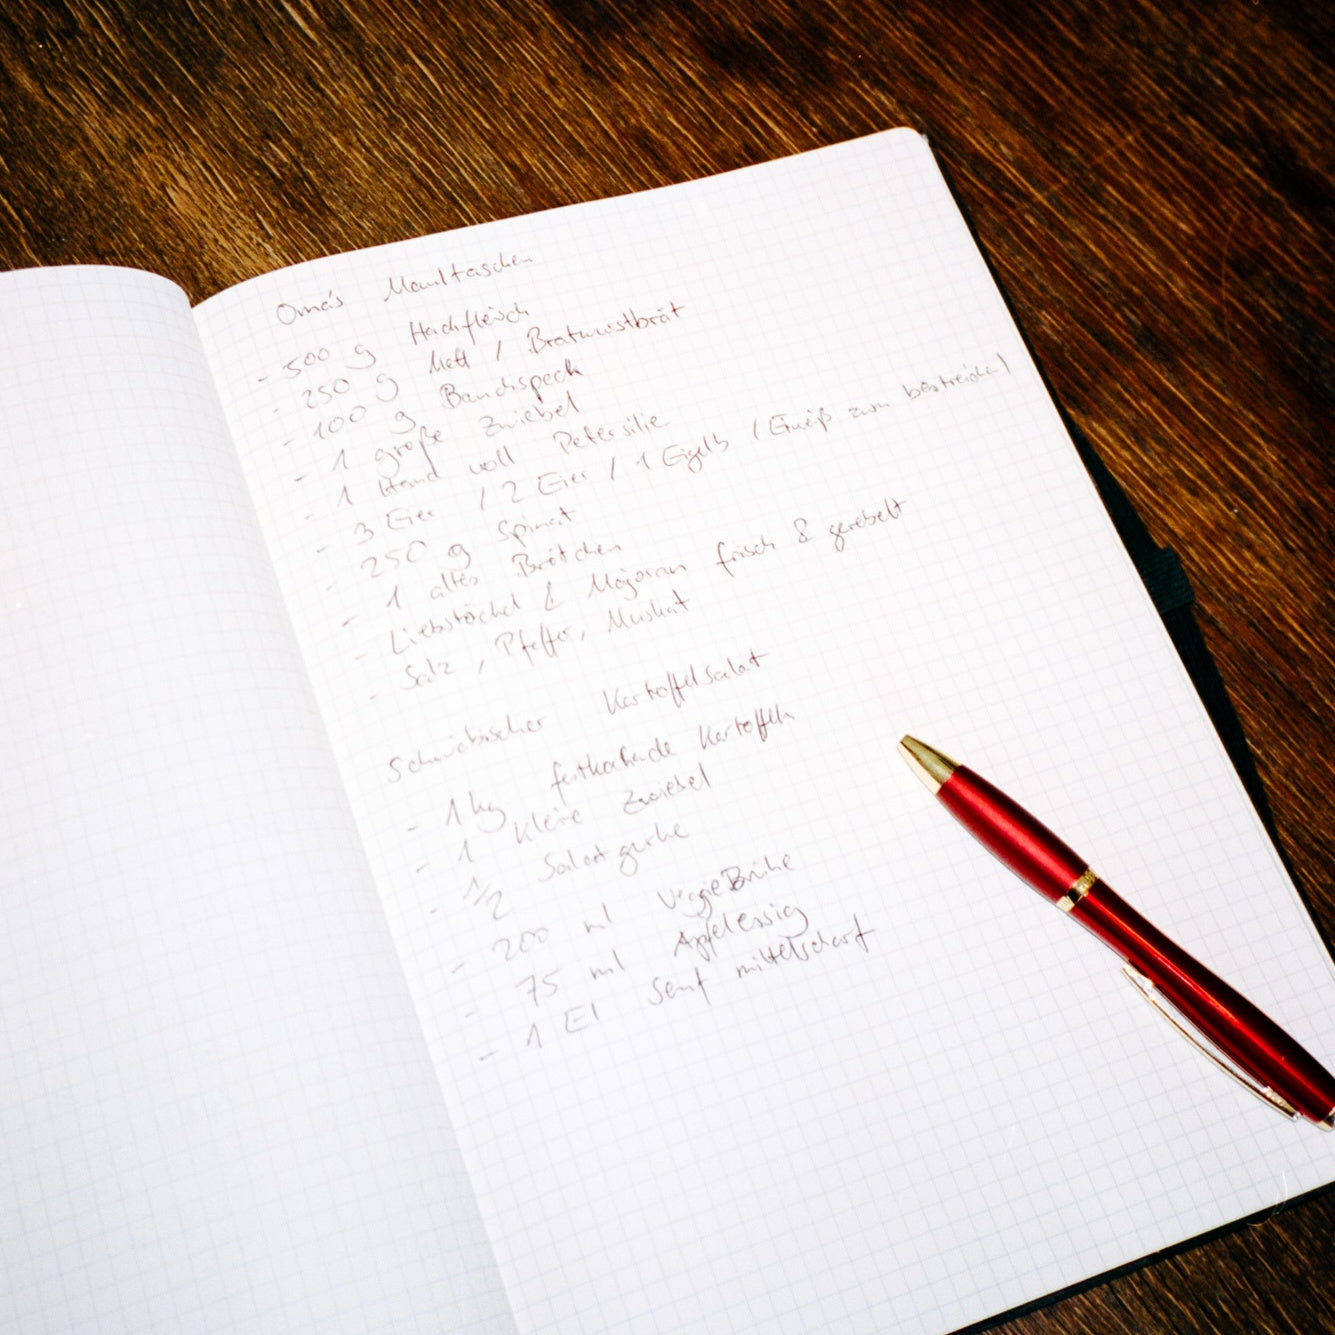 Oma's Maultaschen
- 500 g Hackfleisch
- 250 g Mett / Bratwurstbrät
- 100 g Bauchspeck
- 1 große Zwiebel
- 1 Hand voll Petersilie
- 3 Eier / 2 Eier / 1 Eigelb (Eiweiß zum bestreichen)
- 250 g Spinat
- 1 altes Brötchen
- Liebstöckel & Majoran frisch & gerebelt
- Salz, Pfeffer, Muskat
Schwäbischer Kartoffelsalat
- 1 kg festkochende Kartoffeln
- 1 kleine Zwiebel
- 1/2 Salatgurke
- 200 ml VeggieBrühe
- 75 ml Apfelessig
- 1 El Senf mittelscharf